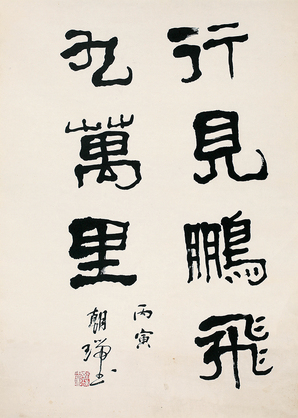 行見鵬飛
九萬里
丙寅
朝瑞书